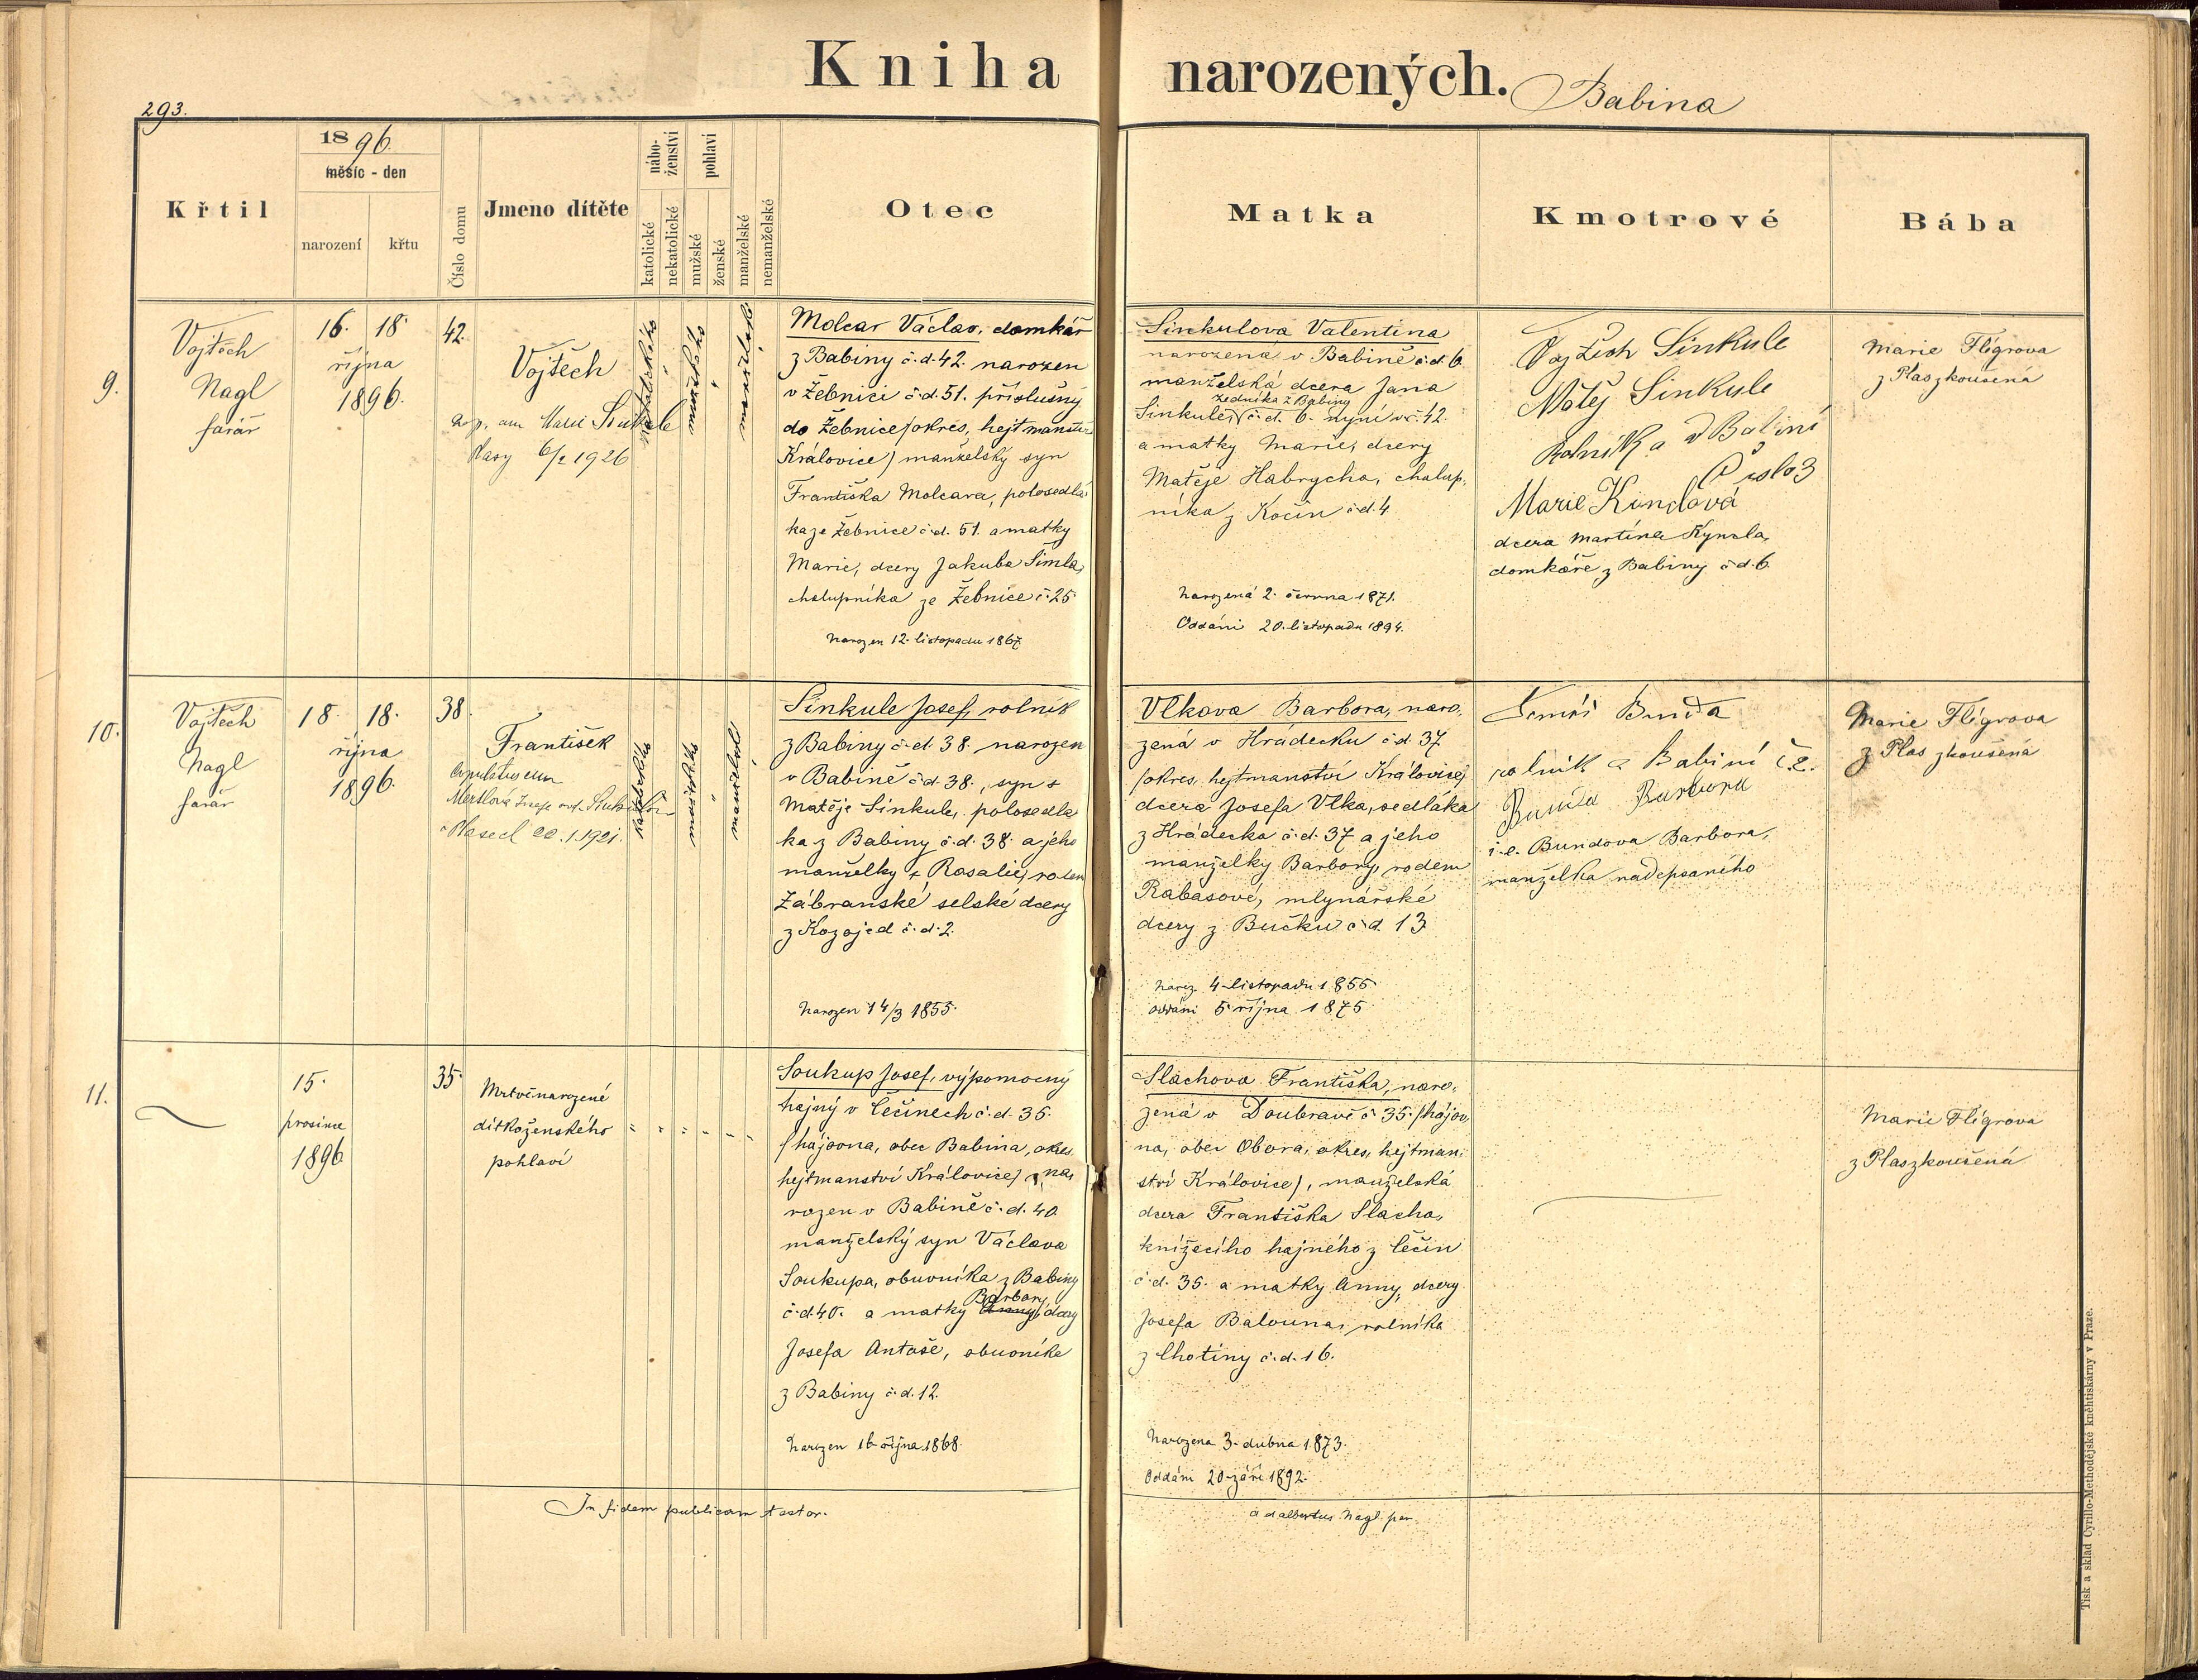 Kniha narozených. Babina
293.
1896.
měsíc - den
Křtil
narození
křtu
Číslo domu
Jmeno dítěte
nábo-
ženství
katolické
nekatolické
pohlaví
mužské
ženské
manželské
nemanželské
Otec
Matka
Kmotrové
Bába
9.
Vojtěch
Nagl
farář
16. 18.
října
1896.
42.
Vojtěch
Plasy 6/2 1926
katolického
mužského
manželské
Molcar Václav, domkář
z Babiny č.d. 42. narozen
v Žebnici č.d. 51. příslušný
do Žebnice (okres, hejtmanství
Královice) manželský syn
Františka Molcara, polosedlá-
ka ze Žebnice č.d. 51. a matky
Marie, dcery Jakuba Šimla,
chalupníka ze Žebnice č. 25.
Narozen 12. listopadu 1867
Sinkulova Valentina
narozená v Babině č.d. 6.
manželská dcera Jana
zedníka z Babiny
Sinkule, č.d. 6. nyní v č. 42.
a matky Marie, dcery
Matěje Habrycha, chalup-
níka z Kočín č.d. 4.
Narozená 2. června 1871.
Oddáni 20. listopadu 1894.
Vojtěch Sinkule
Matěj Sinkule
Rolník a v Babině
Číslo 3
Marie Kindlová
dcera Martina Kynala,
domkáře z Babiny č.d. 6.
Marie Flígrova
z Plas zkoušená
10.
Vojtěch
Nagl
farář
18. 18.
října
1896.
38.
František
copulatus cum
v Plasech 22.1.1921.
katolického
mužského
manželské
Sinkule Josef, rolník
z Babiny č.d. 38. narozen
v Babině č.d. 38., syn +
Matěje Sinkule, polosedlá-
ka z Babiny č.d. 38. a jeho
manželky + Rosalie, rozen
Zábranské selské dcery
z Kozojed č.d. 2.
Narozen 14/3 1855.
Vlkova Barbora, naro-
zená v Hrádecku č.d. 37
(okres, hejtmanství Královice)
dcera Josefa Vlka, sedláka
z Hrádecka č.d. 37 a jeho
manželky Barbory, rodem
Rabasové, mlynářské
dcery z Bučku č.d. 13.
Naroz. 4. listopadu 1855
oddáni 5. října 1875.
Tomáš Bunda
rolník a Babiní č. 2.
Bunda Barbora
i.e. Bundova Barbora,
manželka nadepsaného
Marie Flígrova
z Plas zkoušená
11.
15.
prosince
1896
35.
Mrtvě narozené
dítko ženského
pohlaví
Soukup Josef, výpomocný
hajný v Lečinech č.d. 35.
(hájovna, obec Babina, okres
hejtmanství Královice) na-
rozen v Babině č.d. 40.
manželský syn Václava
Soukupa, obuvníka z Babiny
Barbory
č.d. 40. a matky Anny, dcery
Josefa Antoše, obuvníka
z Babiny č.d. 12.
Narozen 16. října 1868.
Slachova Františka, naro-
zená v Doubravě č. 35. (hájov-
na, obec Obora, okres, hejtman-
ství Královice), manželská
dcera Františka Slacha,
knížecího hajného z Lečin
č.d. 35. a matky Anny, dcery
Josefa Balouna, rolníka
z Lhotiny č.d. 16.
Narozena 3. dubna 1873.
Oddáni 20. září 1892.
Marie Flígrova
z Plas zkoušená
In fidem publicam testor.
Adalbertus Nagl par.
Tisk a sklad Cyrillo-Methodějské kněhtiskárny v Praze.